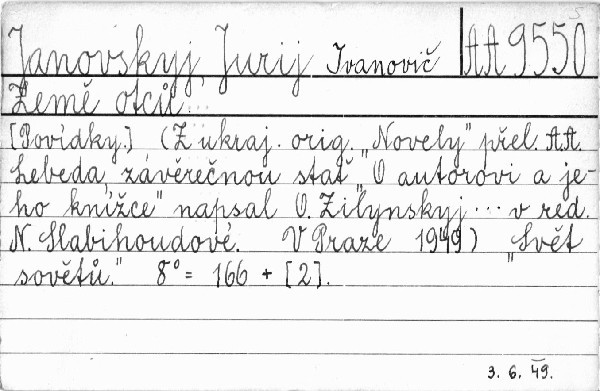 Janovskyj, Jurij Ivanovič AA 9550
Země otců ...
[Povídky.] (Z ukraj. orig. „Novely" přel. A.A.
Lebeda, závěrečnou stať „O autorovi a je-
ho knížce" napsal O. Zilynskyj ... v red.
N. Slabihoudové. V Praze 1949) „Svět
sovětů." 8° = 166 + [2].
3. 6. 49.